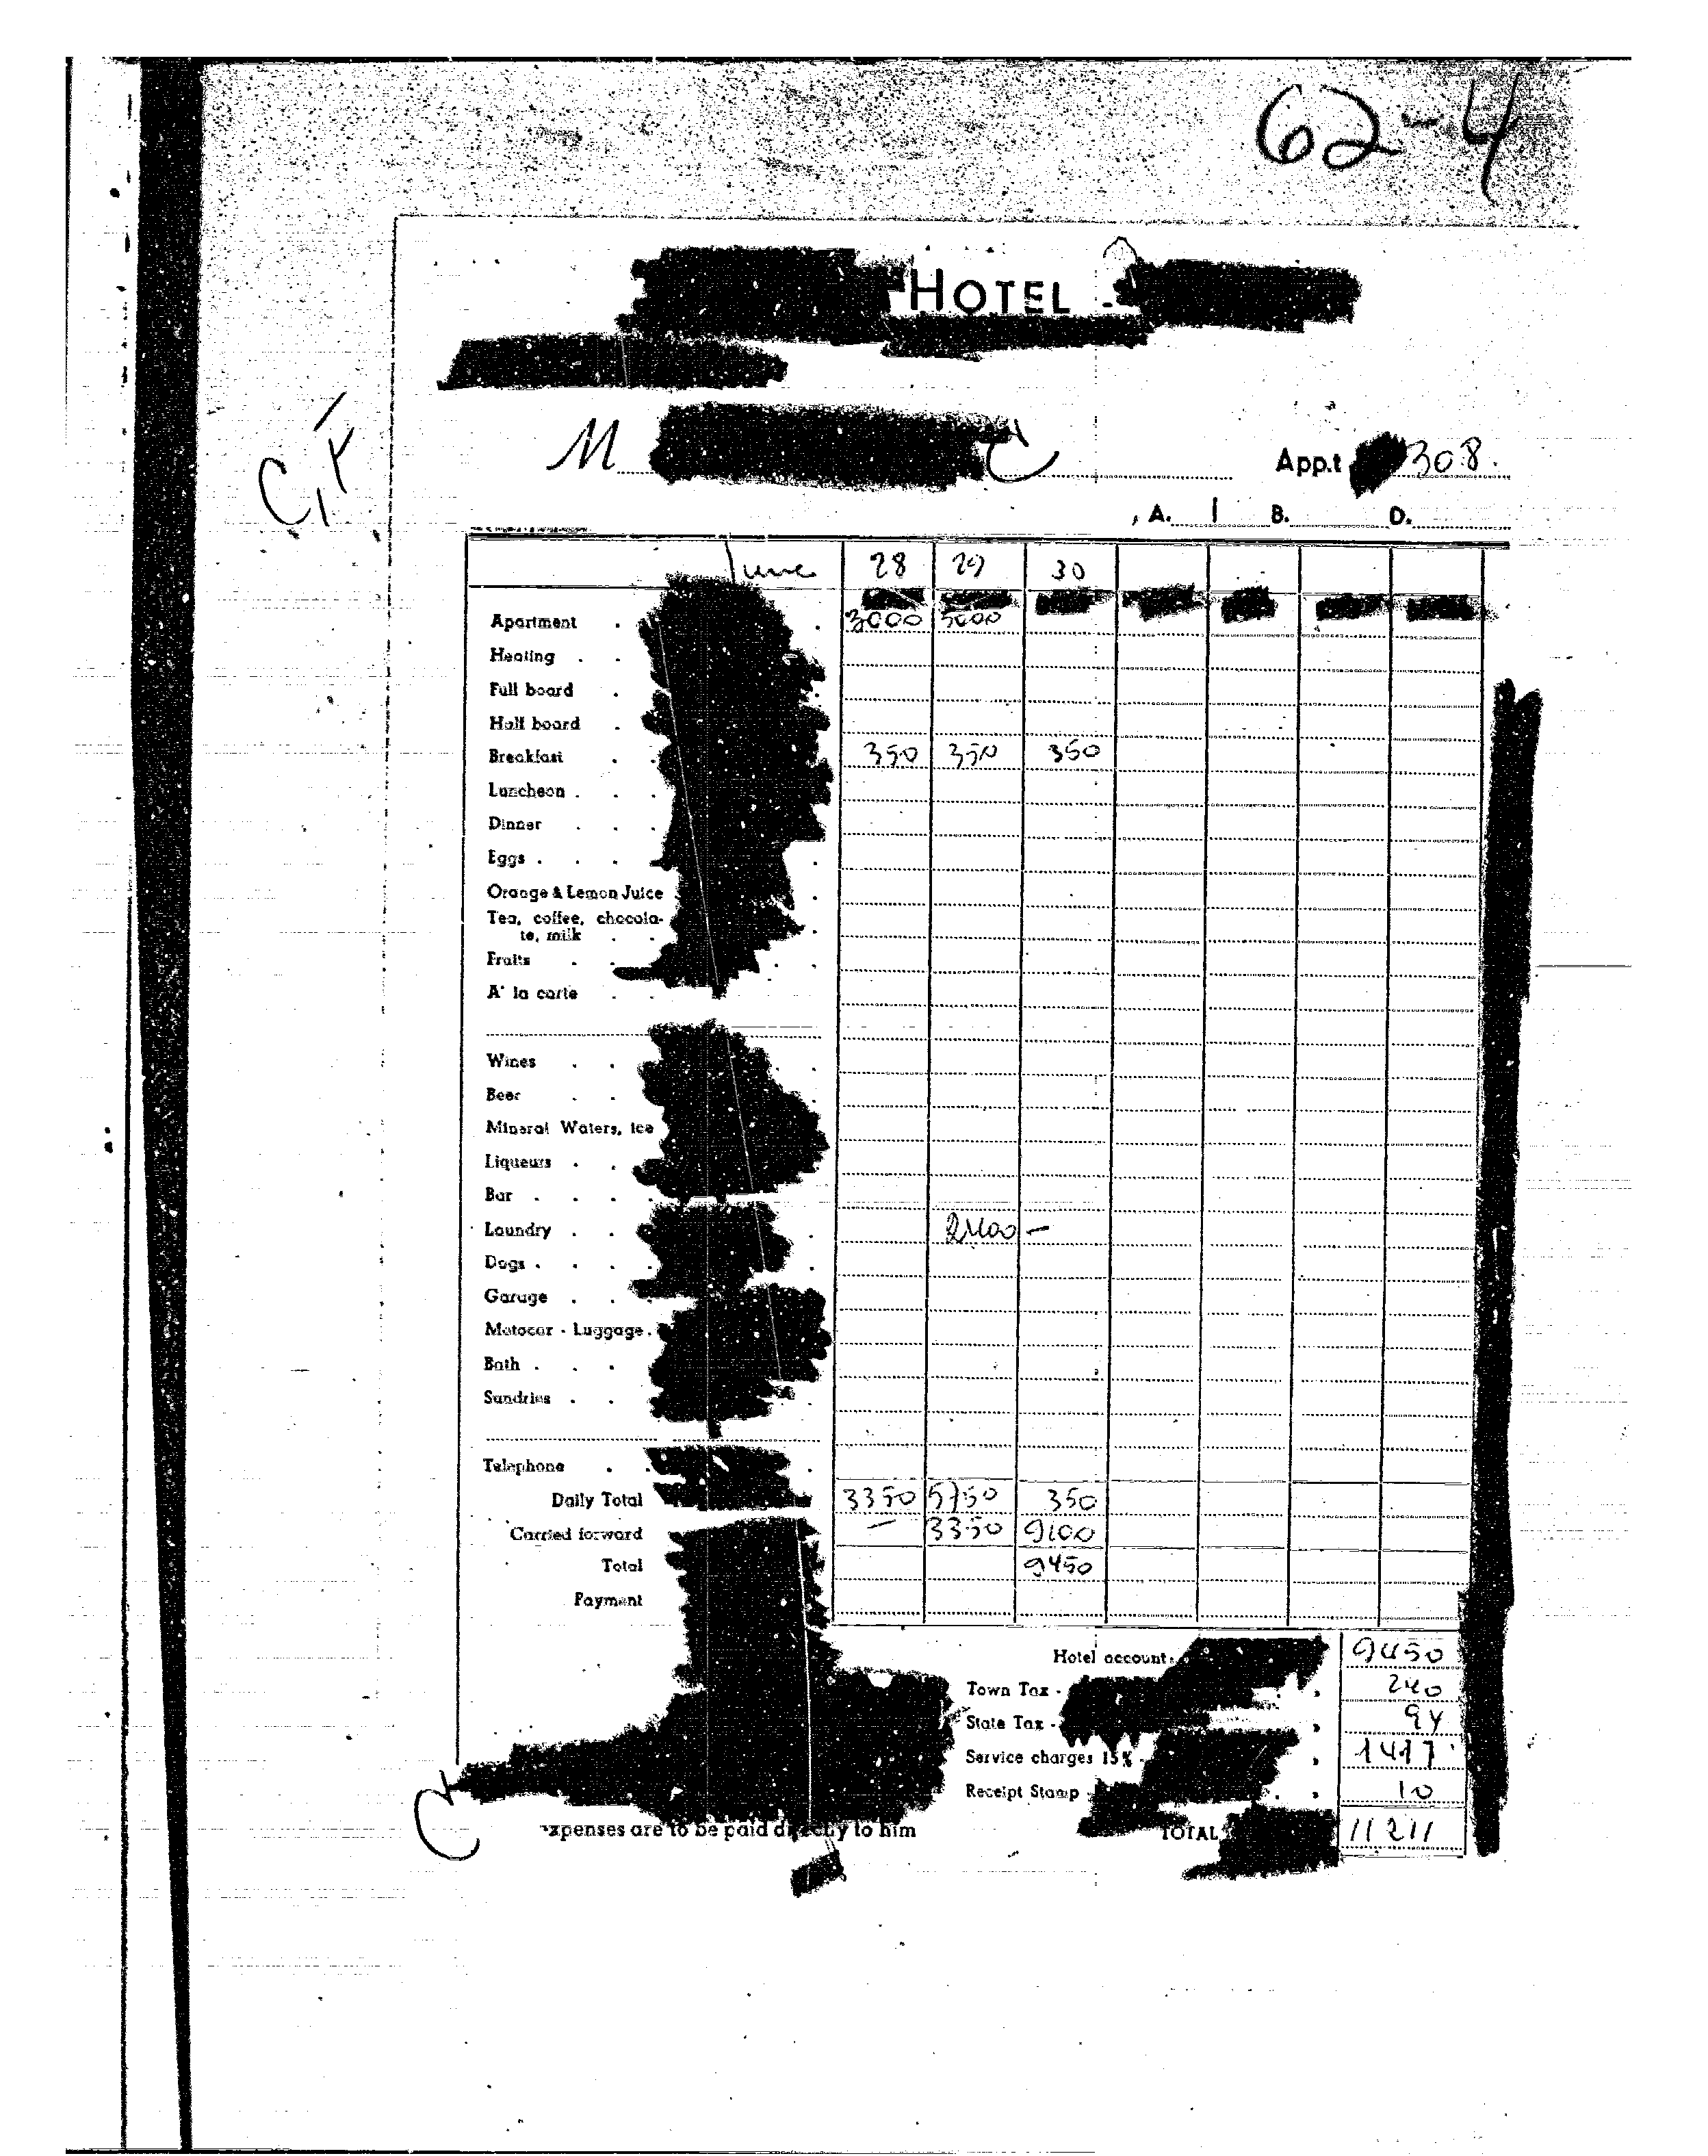 62-4
HOTEL -
M
App.t 308.
, A. 1 B. D.
June 28 29 30
Apartment . . 3000 3000
Heating . .
Full board .
Half board .
Breakfast . . 350 350 350
Luncheon . . .
Dinner . . .
Eggs . . .
Orange & Lemon Juice
Tea, coffee, chocola-
te, milk . .
Fruits . .
A' la carte . .
Wines . .
Beer . .
Mineral Waters, ice
Liqueurs . .
Bar . . . .
Laundry . . 2400 —
Dogs . . . .
Garage . . .
Motocar - Luggage .
Bath . . .
Sundries . .
Telephone . .
Daily Total 3350 5750 350
Carried forward — 3350 9100
Total 9450
Payment
Hotel account 9450
Town Tax - 240
State Tax - 94
Service charges 15% - 1417
Receipt Stamp 10
expenses are to be paid directly to him
TOTAL 11211